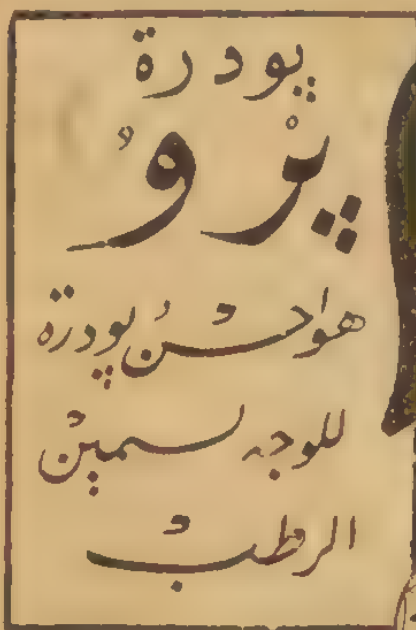 پودرة
پرْ وُ
هو احسن پودرة
للوجه لسمين
الرطب